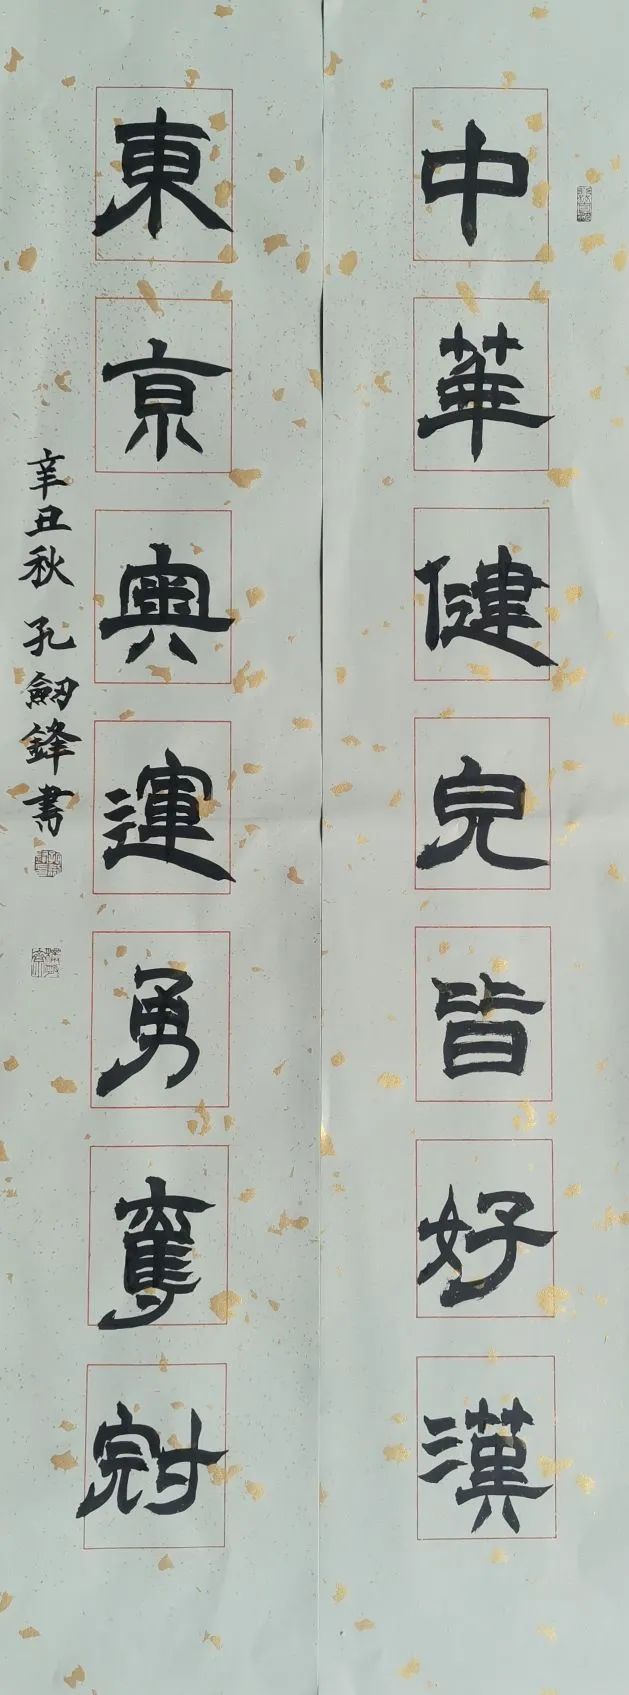 中華健兒皆好漢
東京奥運勇奪冠
辛丑秋孔劒鋒書